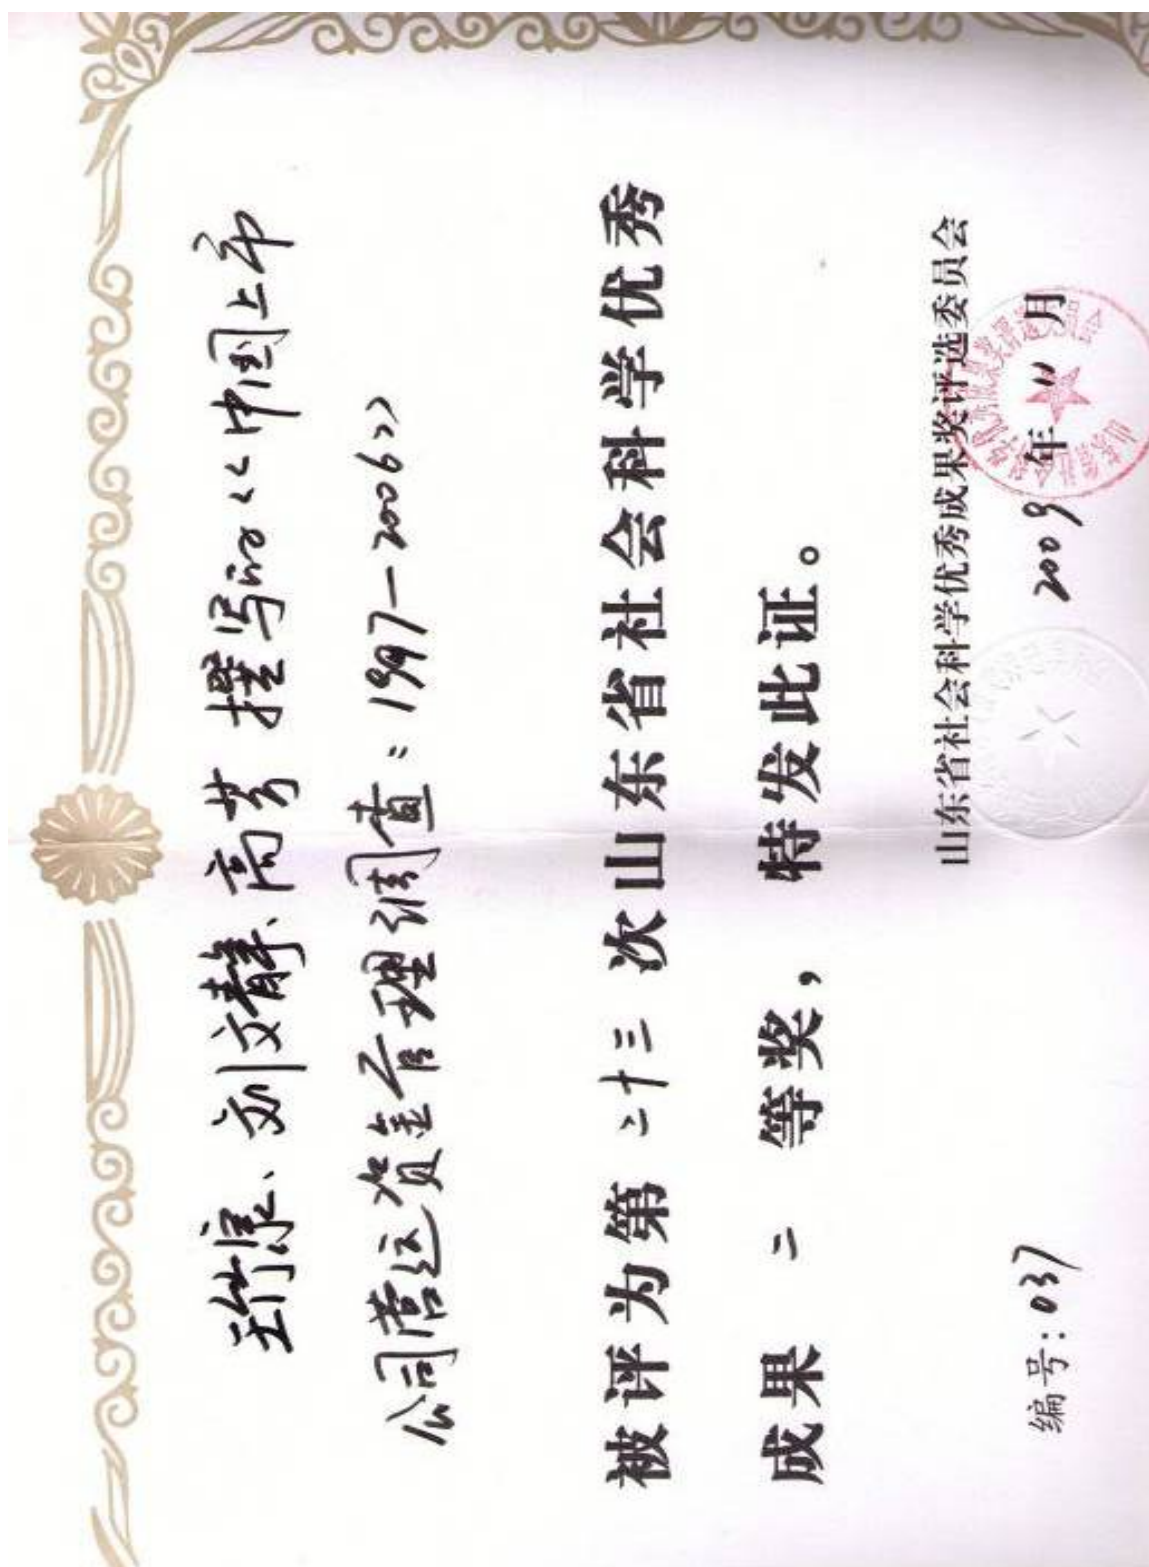 王竹泉、刘文静、高芳 撰写的《中国上市
公司营运资金管理调查：1997—2006》
被评为第 二十三 次山东省社会科学优秀
成果 二 等奖，特发此证。
山东省社会科学优秀成果奖评选委员会
2009 年 11 月
编号：037